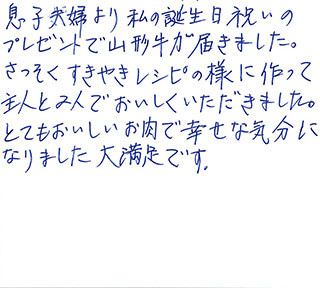 息子夫婦より私の誕生日祝いの
プレゼントで山形牛が届きました。
さっそくすきやきレシピの様に作って
主人と2人でおいしくいただきました。
とてもおいしいお肉で幸せな気分に
なりました大満足です。